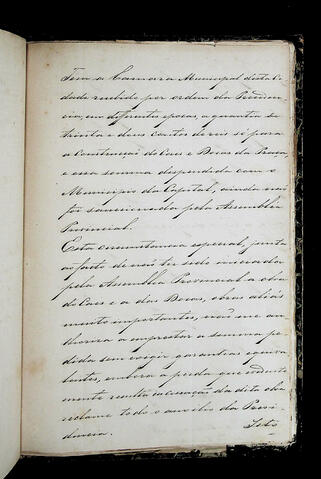 Tem a Camara Municipal desta Ci
dade recebido por ordem da Presiden
cia, em differentes epocas, a quantia de
trinta e dous contos de reis só para
a construcção do Caes e Docas da Praça,
e essa somma despendida com o
Municipio da Capital, ainda não
foi sanccionada pela Assemblea
Provincial.
Esta circunstancia especial, junta
ao facto de não ter sido iniciada
pela Assemblea Provincial a obra
do Caes e a das Docas, obras aliás
mento importantes, não me au
thorisa a emprestar a somma pe
dida sem exigir garantias equiva
lentes, embora a perda que evidente
mente resulta da dita obra
reclame todo o auxilio da Provi
dencia.